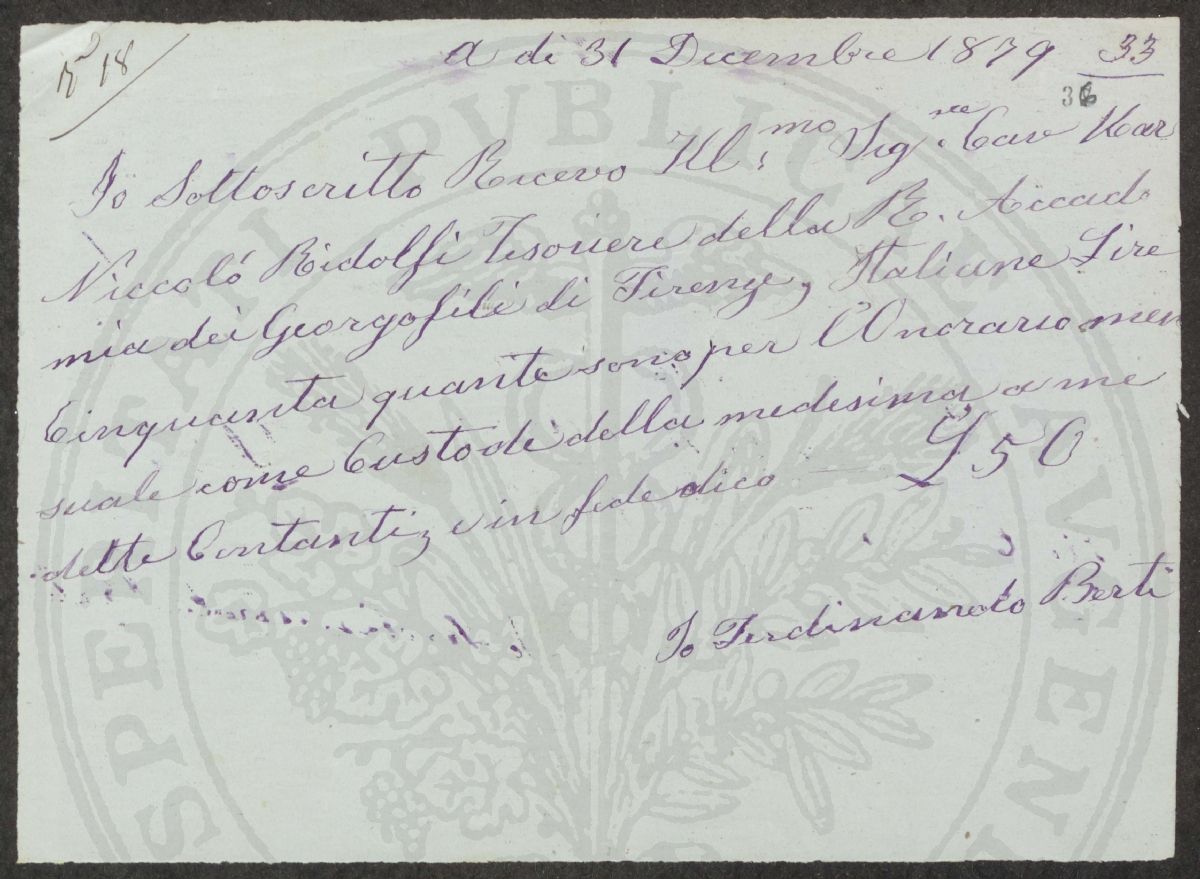 N° 18
a di 31 Dicembre 1879 33
36
Io Sottoscritto Ricevo Ill.mo Sig.re Cav Mar
Niccoló Ridolfi Tesoriere della R. Accade
mia dei Georgofili di Firenze, Italiane Lire
Cinquanta quante sono per l'Onorario men
suale come Custode della medesima a me
dette Contanti, e in fede dico — £ 50
Io Ferdinando Berti
PUBLICAE
PROSPERITATI
AVGENDAE